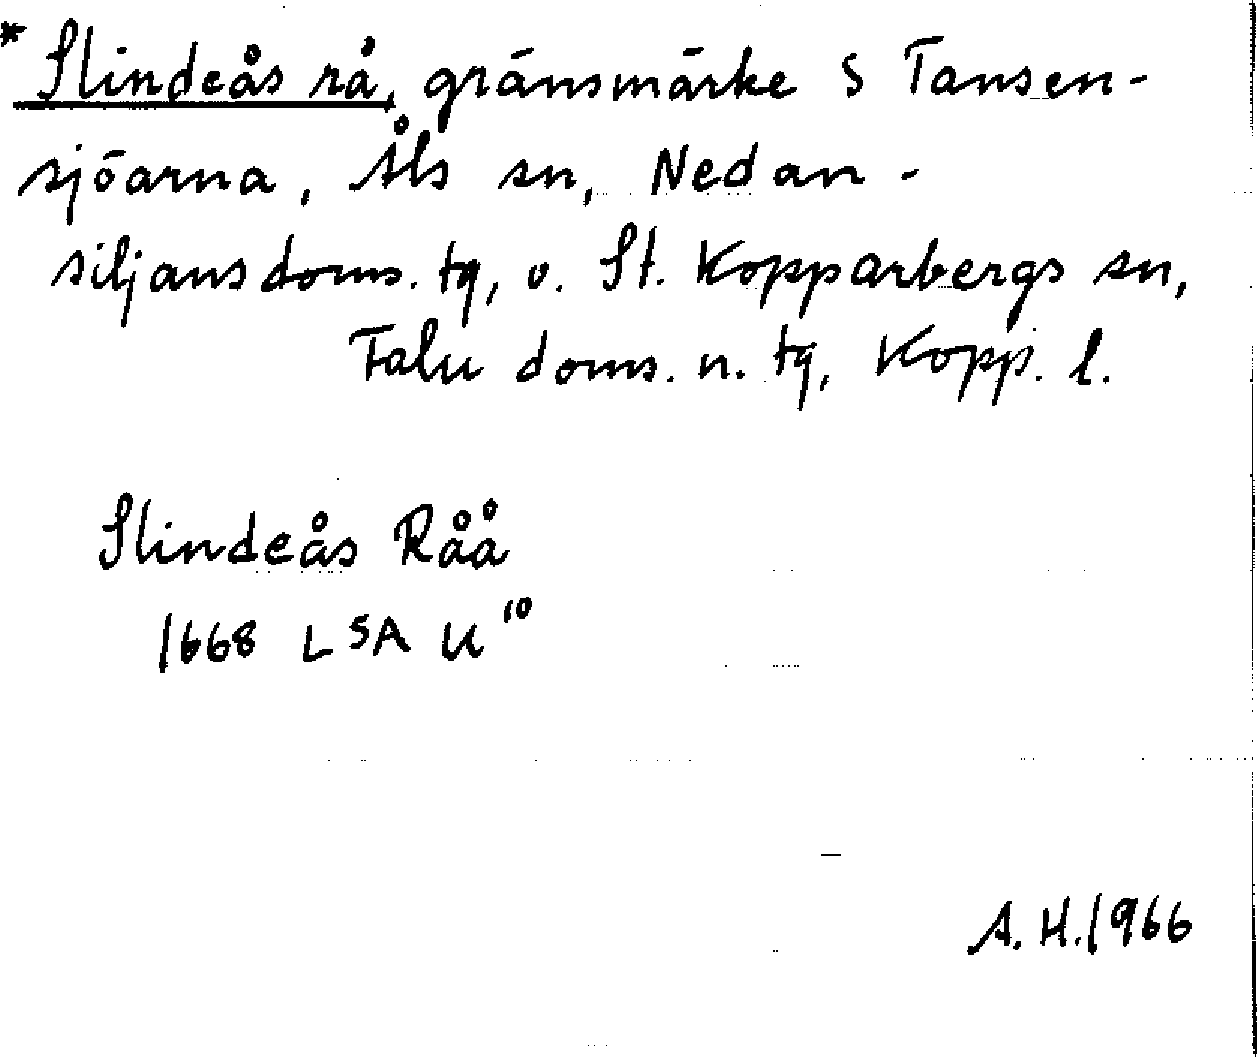 * Slindeås rå, gränsmärke S Tansen-
sjöarna, Åls sn, Nedan-
siljans doms. tg, o. St. Kopparbergs sn,
Falu doms. n. tg, Kopp. l.
Slindeås Råå
1668 LSA U¹⁰
A. H. 1966